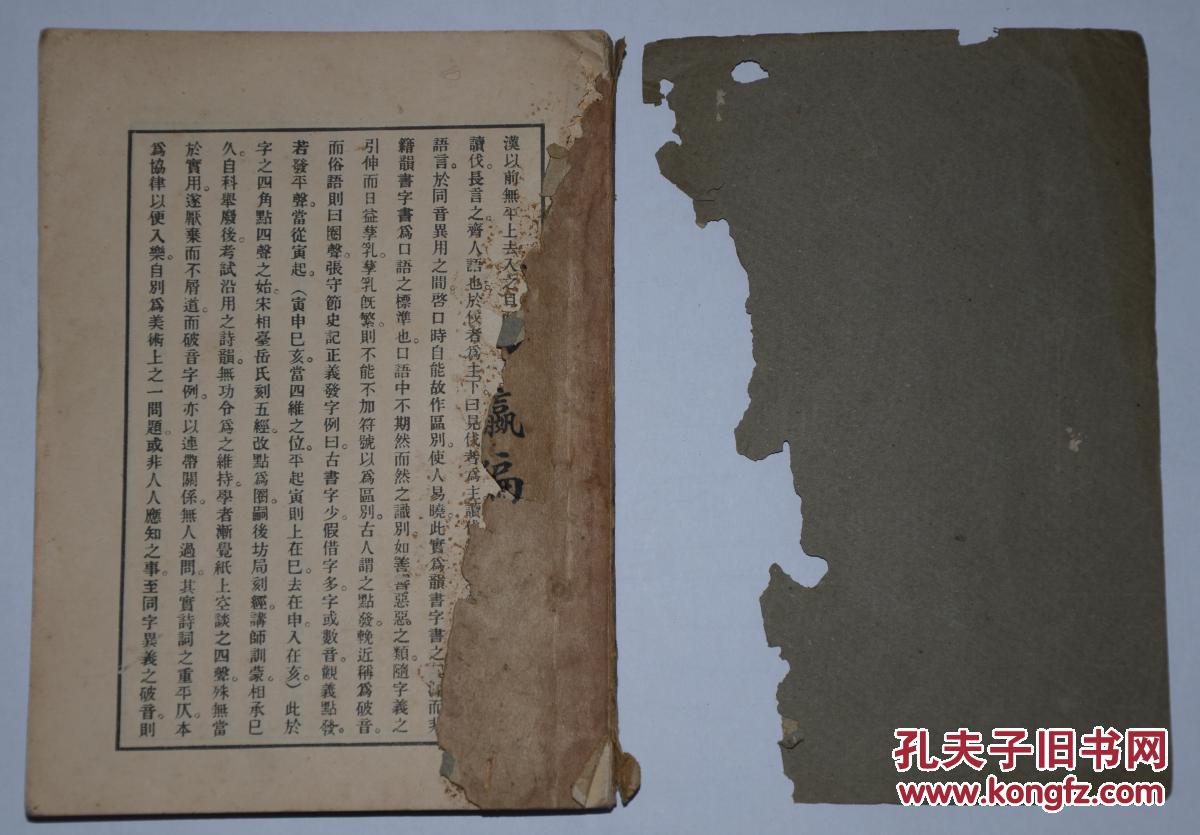 漢以前無平上去入之目
讀伐長言之齊人語也於伐者爲主下曰見伐者爲主讀伐
語言於同音異用之間啓口時自能故作區別使人易曉此實爲韻書字書之
籍韻書字書爲口語之標準也口語中不期然而然之識別如善善惡惡之類隨字義之
引伸而日益孳乳孳乳旣繁則不能不加符號以爲區別古人謂之點發輓近稱爲破音
而俗語則曰圈聲張守節史記正義發字例曰古書字少假借字多字或數音觀義點發
若發平聲當從寅起(寅申巳亥當四維之位平起寅則上在巳去在申入在亥)此於
字之四角點四聲之始宋相臺岳氏刻五經改點爲圈嗣後坊局刻經講師訓蒙相承已
久自科舉廢後考試沿用之詩韻無功令爲之維持學者漸覺紙上空談之四聲殊無當
於實用遂厭棄而不屑道而破音字例亦以連帶關係無人過問其實詩詞之重平仄本
爲協律以便入樂自別爲美術上之一問題或非人人應知之事至同字異義之破音則
瀛編
孔夫子旧书网
www.kongfz.com